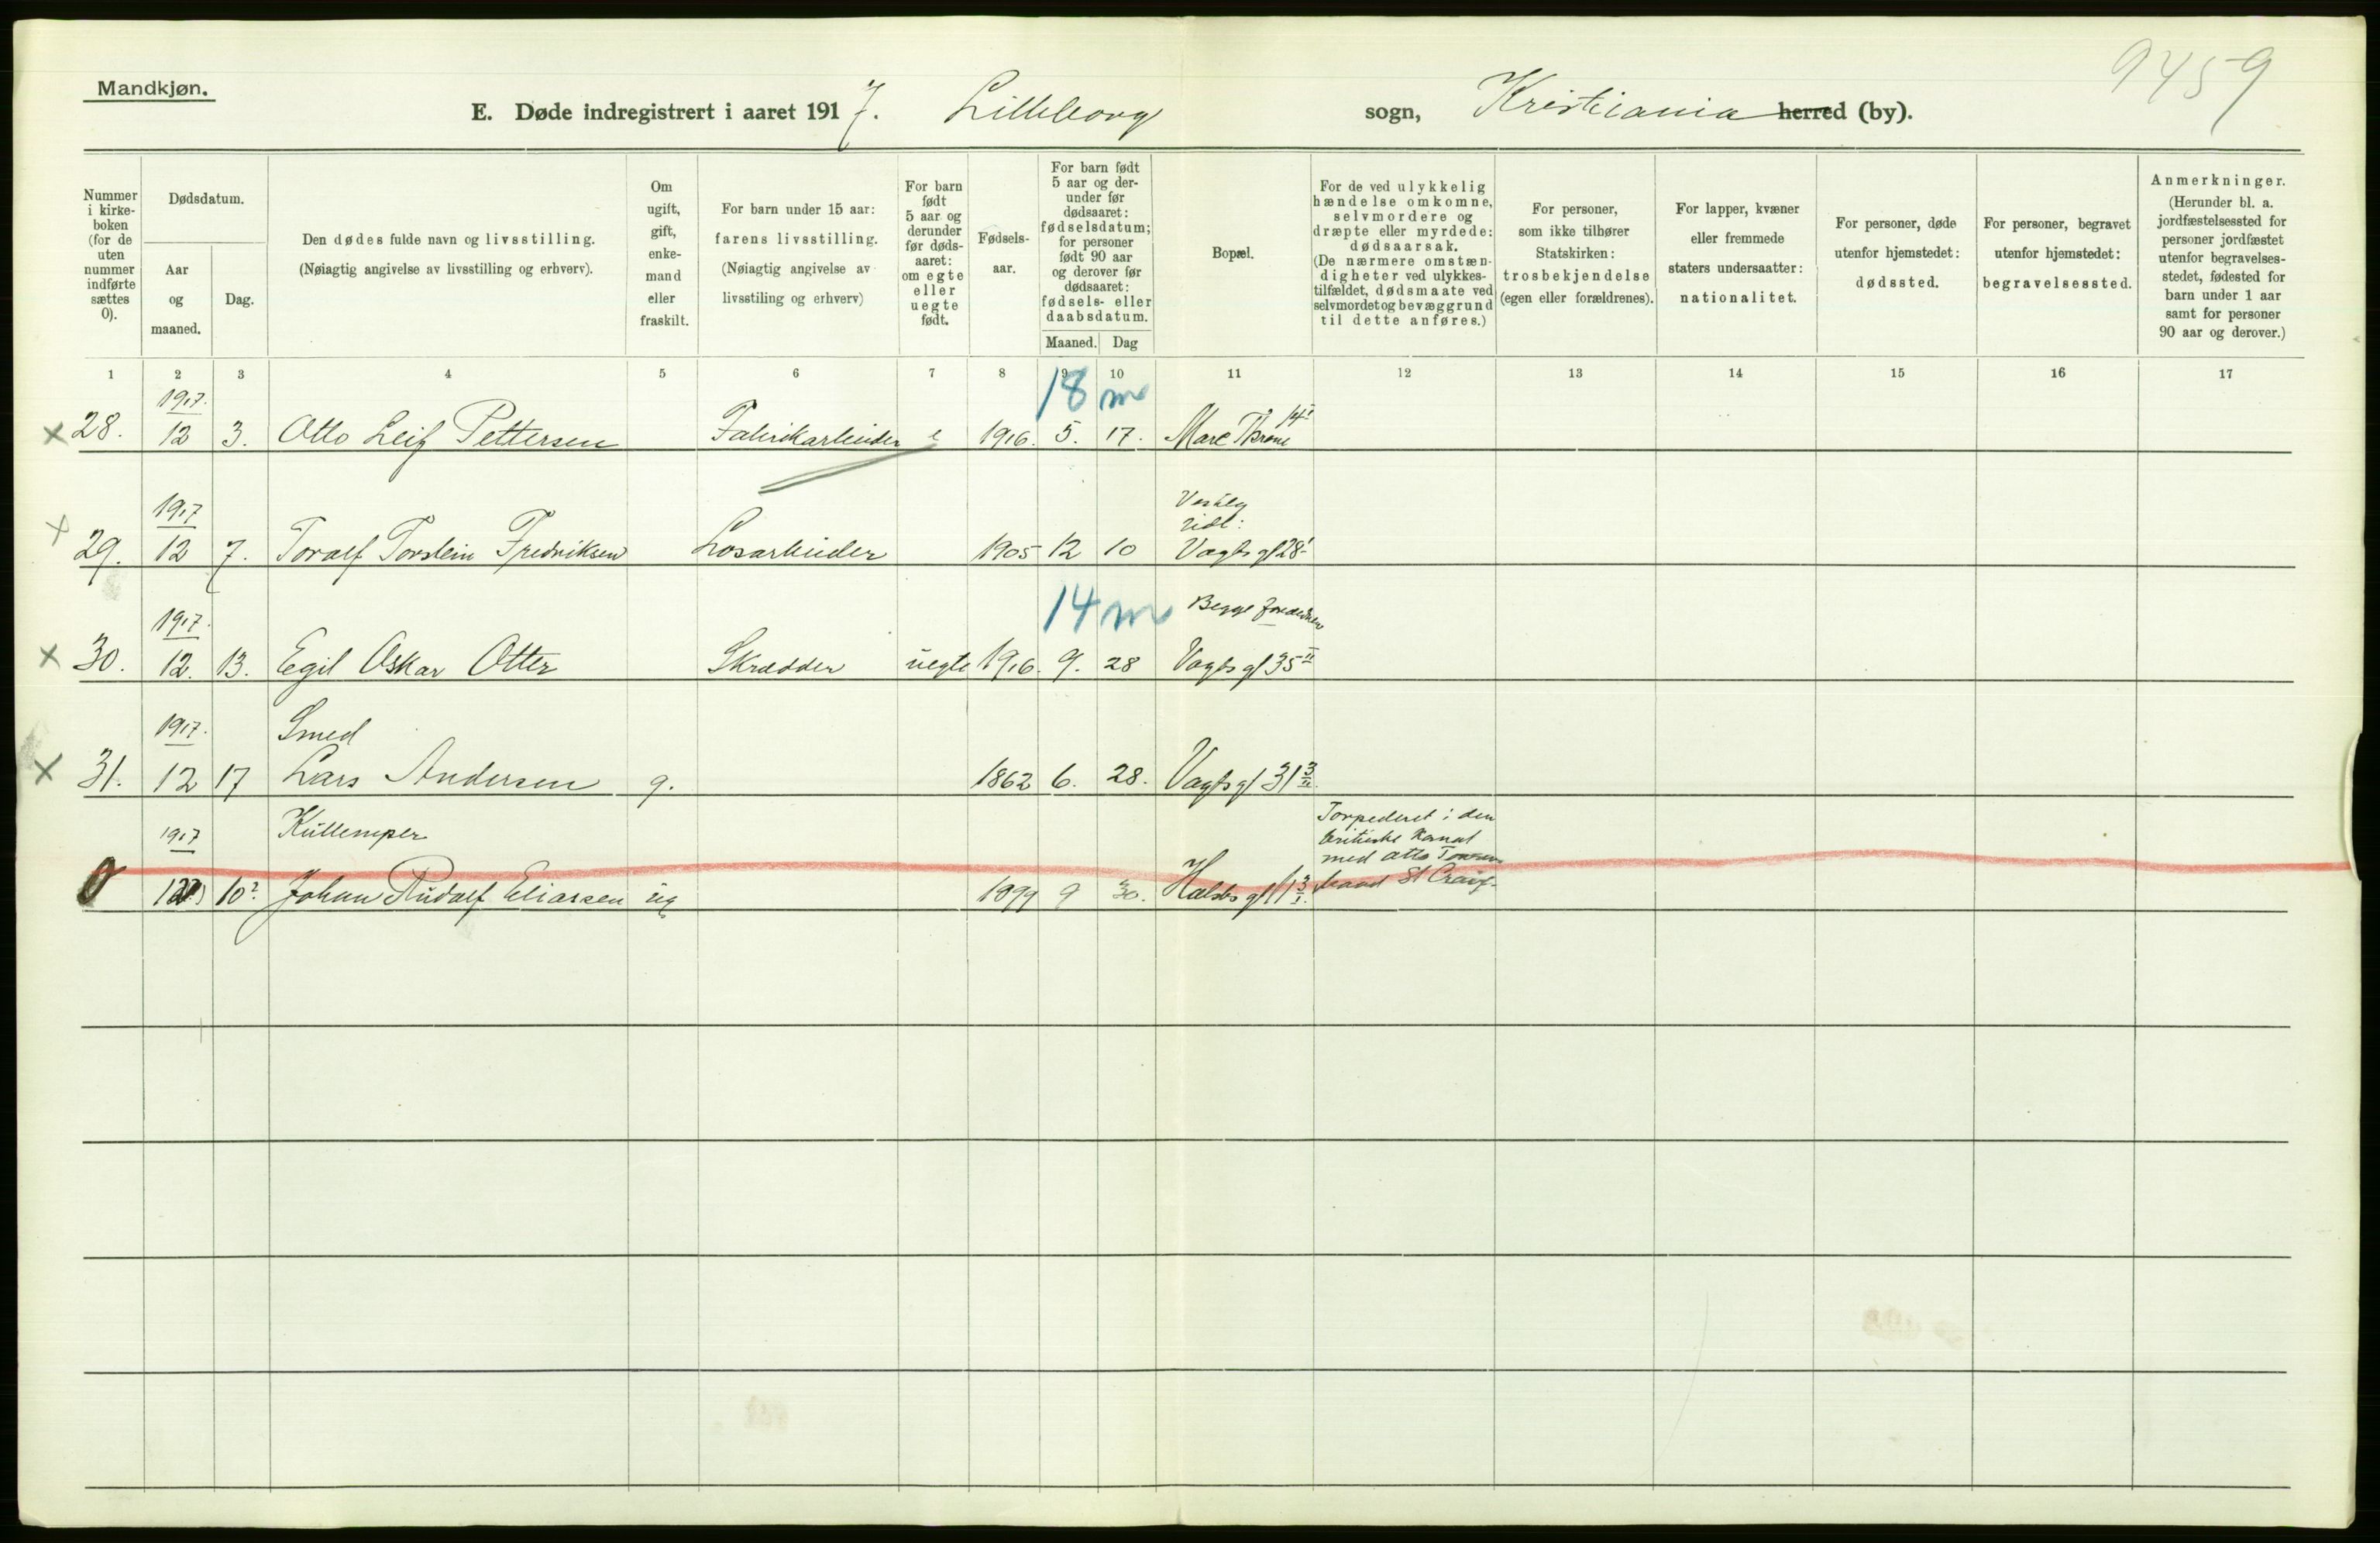 9459
Mandkjøn.
E. Døde indregistrert i aaret 1917. Lilleborg sogn, Kristiania herred (by).
Nummer i kirkeboken (for de uten nummer indførte sættes 0).
Dødsdatum.
Aar og maaned.
Dag.
Den dødes fulde navn og livsstilling.
(Nøiagtig angivelse av livsstilling og erhverv).
Om ugift, gift, enkemand eller fraskilt.
For barn under 15 aar:
farens livsstilling.
(Nøiagtig angivelse av livsstiling og erhverv)
For barn født 5 aar og derunder før dødsaaret: om egte eller uegte født.
Fødselsaar.
For barn født 5 aar og derunder før dødsaaret: fødselsdatum; for personer født 90 aar og derover før dødsaaret: fødsels- eller daabsdatum.
Maaned. Dag
Bopæl.
For de ved ulykkelig hændelse omkomne, selvmordere og dræpte eller myrdede: dødsaarsak.
(De nærmere omstændigheter ved ulykkestilfældet, dødsmaate ved selvmordet og bevæggrund til dette anføres.)
For personer, som ikke tilhører Statskirken: trosbekjendelse (egen eller forældrenes).
For lapper, kvæner eller fremmede staters undersaatter: nationalitet.
For personer, døde utenfor hjemstedet: dødssted.
For personer, begravet utenfor hjemstedet: begravelsessted.
Anmerkninger.
(Herunder bl. a. jordfæstelsessted for personer jordfæstet utenfor begravelsesstedet, fødested for barn under 1 aar samt for personer 90 aar og derover.)
1 2 3 4 5 6 7 8 9 10 11 12 13 14 15 16 17
1917. 18 m
x 28. 12 3. Otto Leif Pettersen Fabrikarbeider e 1916. 5. 17. Marc Thrane 14 I
1917
x 29. 12 7. Toralf Torstein Fredriksen Losarbeider 1905 12 10 Vogts gt 28 I
1917. 14 m Begge forældrene
x 30. 12. 13. Egil Oskar Otter Skrædder uegte 1916. 9. 28 Vogts gt 35 II
1917. Smed
x 31. 12 17 Lars Andersen g. 1862 6. 28. Vogts gt 31 3 II
1917 Kullemper Torpederet i den britiske Kanal med
0 12 10? Johan Rudolf Eliassen ug 1899 9 30. gt 11 3 I. St Craig